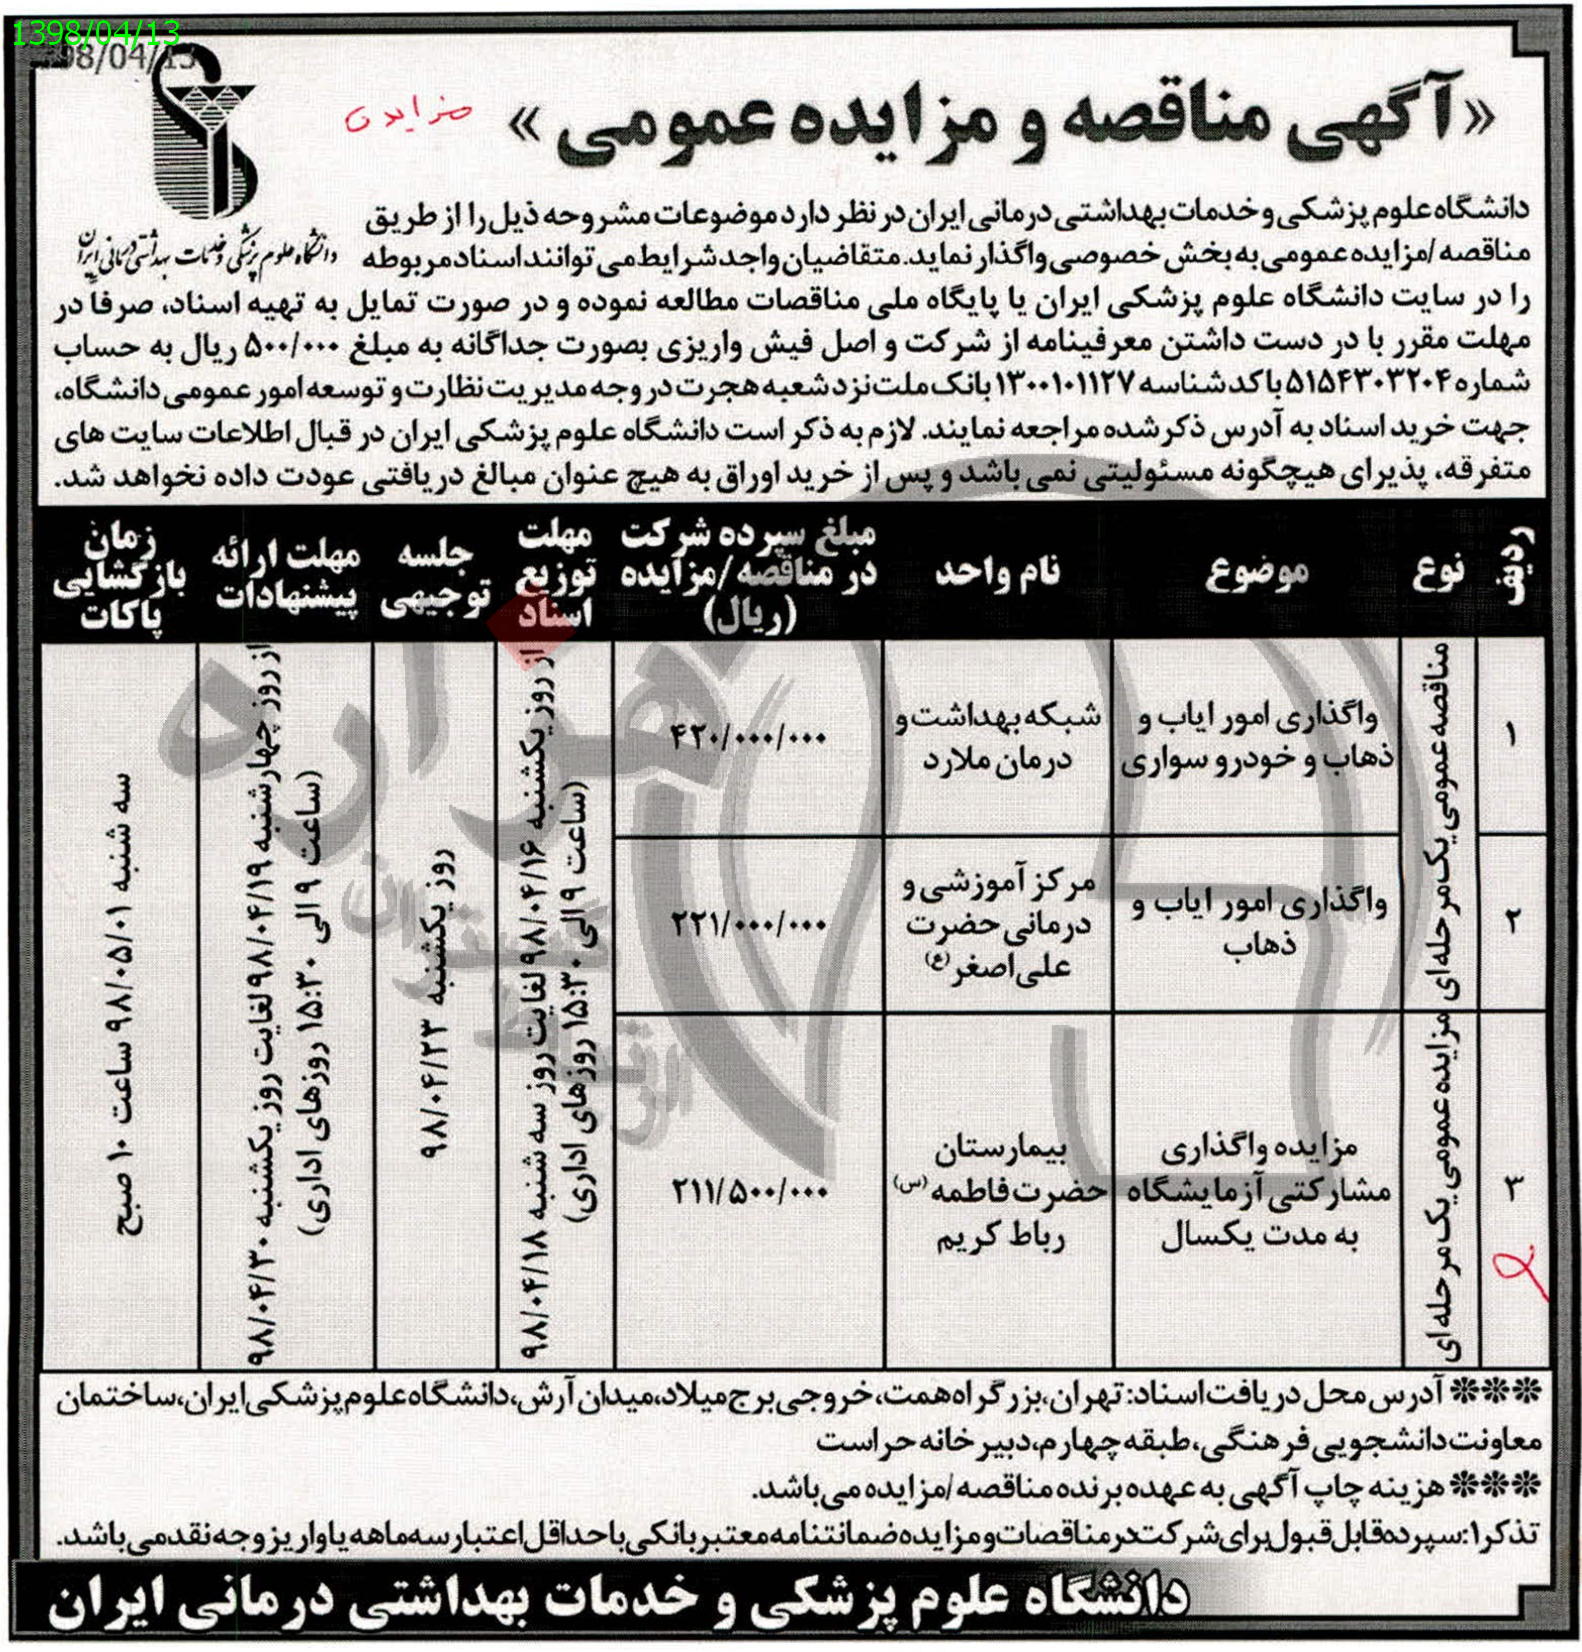 1398/04/13
98/04/13
«آگهی مناقصه و مزایده عمومی»
مزایده
دانشگاه علوم پزشکی و خدمات بهداشتی درمانی ایران
دانشگاه علوم پزشکی و خدمات بهداشتی درمانی ایران در نظر دارد موضوعات مشروحه ذیل را از طریق
مناقصه/مزایده عمومی به بخش خصوصی واگذار نماید. متقاضیان واجد شرایط می توانند اسناد مربوطه
را در سایت دانشگاه علوم پزشکی ایران یا پایگاه ملی مناقصات مطالعه نموده و در صورت تمایل به تهیه اسناد، صرفاً در
مهلت مقرر با در دست داشتن معرفینامه از شرکت و اصل فیش واریزی بصورت جداگانه به مبلغ ۵۰۰/۰۰۰ ریال به حساب
شماره ۵۱۵۴۳۰۳۲۰۴ با کد شناسه ۱۳۰۰۱۰۱۱۲۷ بانک ملت نزد شعبه هجرت در وجه مدیریت نظارت و توسعه امور عمومی دانشگاه،
جهت خرید اسناد به آدرس ذکر شده مراجعه نمایند. لازم به ذکر است دانشگاه علوم پزشکی ایران در قبال اطلاعات سایت های
متفرقه، پذیرای هیچگونه مسئولیتی نمی باشد و پس از خرید اوراق به هیچ عنوان مبالغ دریافتی عودت داده نخواهد شد.
ردیف
نوع
موضوع
نام واحد
مبلغ سپرده شرکت
در مناقصه/مزایده
(ریال)
مهلت
توزیع
اسناد
جلسه
توجیهی
مهلت ارائه
پیشنهادات
زمان
بازگشایی
پاکات
۱
مناقصه عمومی یک مرحله ای
واگذاری امور ایاب و
ذهاب و خودرو سواری
شبکه بهداشت و
درمان ملارد
۴۲۰/۰۰۰/۰۰۰
۲
واگذاری امور ایاب و
ذهاب
مرکز آموزشی و
درمانی حضرت
علی اصغر (ع)
۲۲۱/۰۰۰/۰۰۰
۳
مزایده عمومی یک مرحله ای
مزایده واگذاری
مشارکتی آزمایشگاه
به مدت یکسال
بیمارستان
حضرت فاطمه (س)
رباط کریم
۲۱۱/۵۰۰/۰۰۰
از روز یکشنبه ۹۸/۰۴/۱۶ لغایت روز سه شنبه ۹۸/۰۴/۱۸
(ساعت ۹ الی ۱۵:۳۰ روزهای اداری)
روز یکشنبه ۹۸/۰۴/۲۳
از روز چهارشنبه ۹۸/۰۴/۱۹ لغایت روز یکشنبه ۹۸/۰۴/۳۰
(ساعت ۹ الی ۱۵:۳۰ روزهای اداری)
سه شنبه ۹۸/۰۵/۰۱ ساعت ۱۰ صبح
*** آدرس محل دریافت اسناد: تهران، بزرگراه همت، خروجی برج میلاد، میدان آرش، دانشگاه علوم پزشکی ایران، ساختمان
معاونت دانشجویی فرهنگی، طبقه چهارم، دبیرخانه حراست
*** هزینه چاپ آگهی به عهده برنده مناقصه/مزایده می باشد.
تذکر۱: سپرده قابل قبول برای شرکت در مناقصات و مزایده ضمانتنامه معتبر بانکی با حداقل اعتبار سه ماهه یا واریز وجه نقد می باشد.
دانشگاه علوم پزشکی و خدمات بهداشتی درمانی ایران